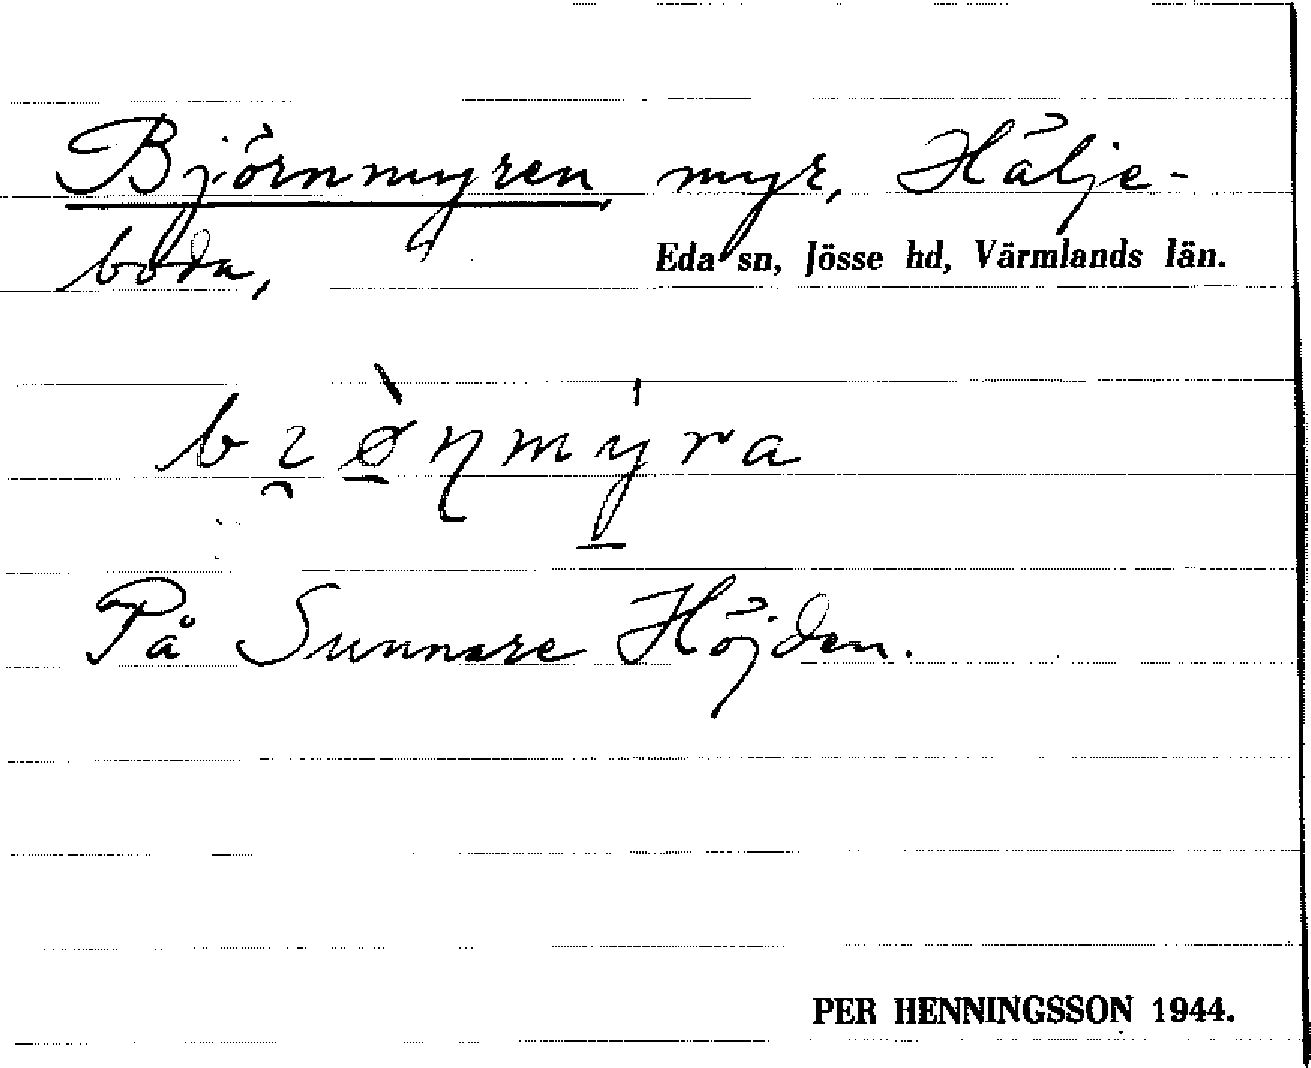 Björnmyren, myr, Hälje-
boda,
Eda sn, Jösse hd, Värmlands län.
bɿ̯ø̠̀ɳmý̠ra
På Sunnare Höjden.
PER HENNINGSSON 1944.